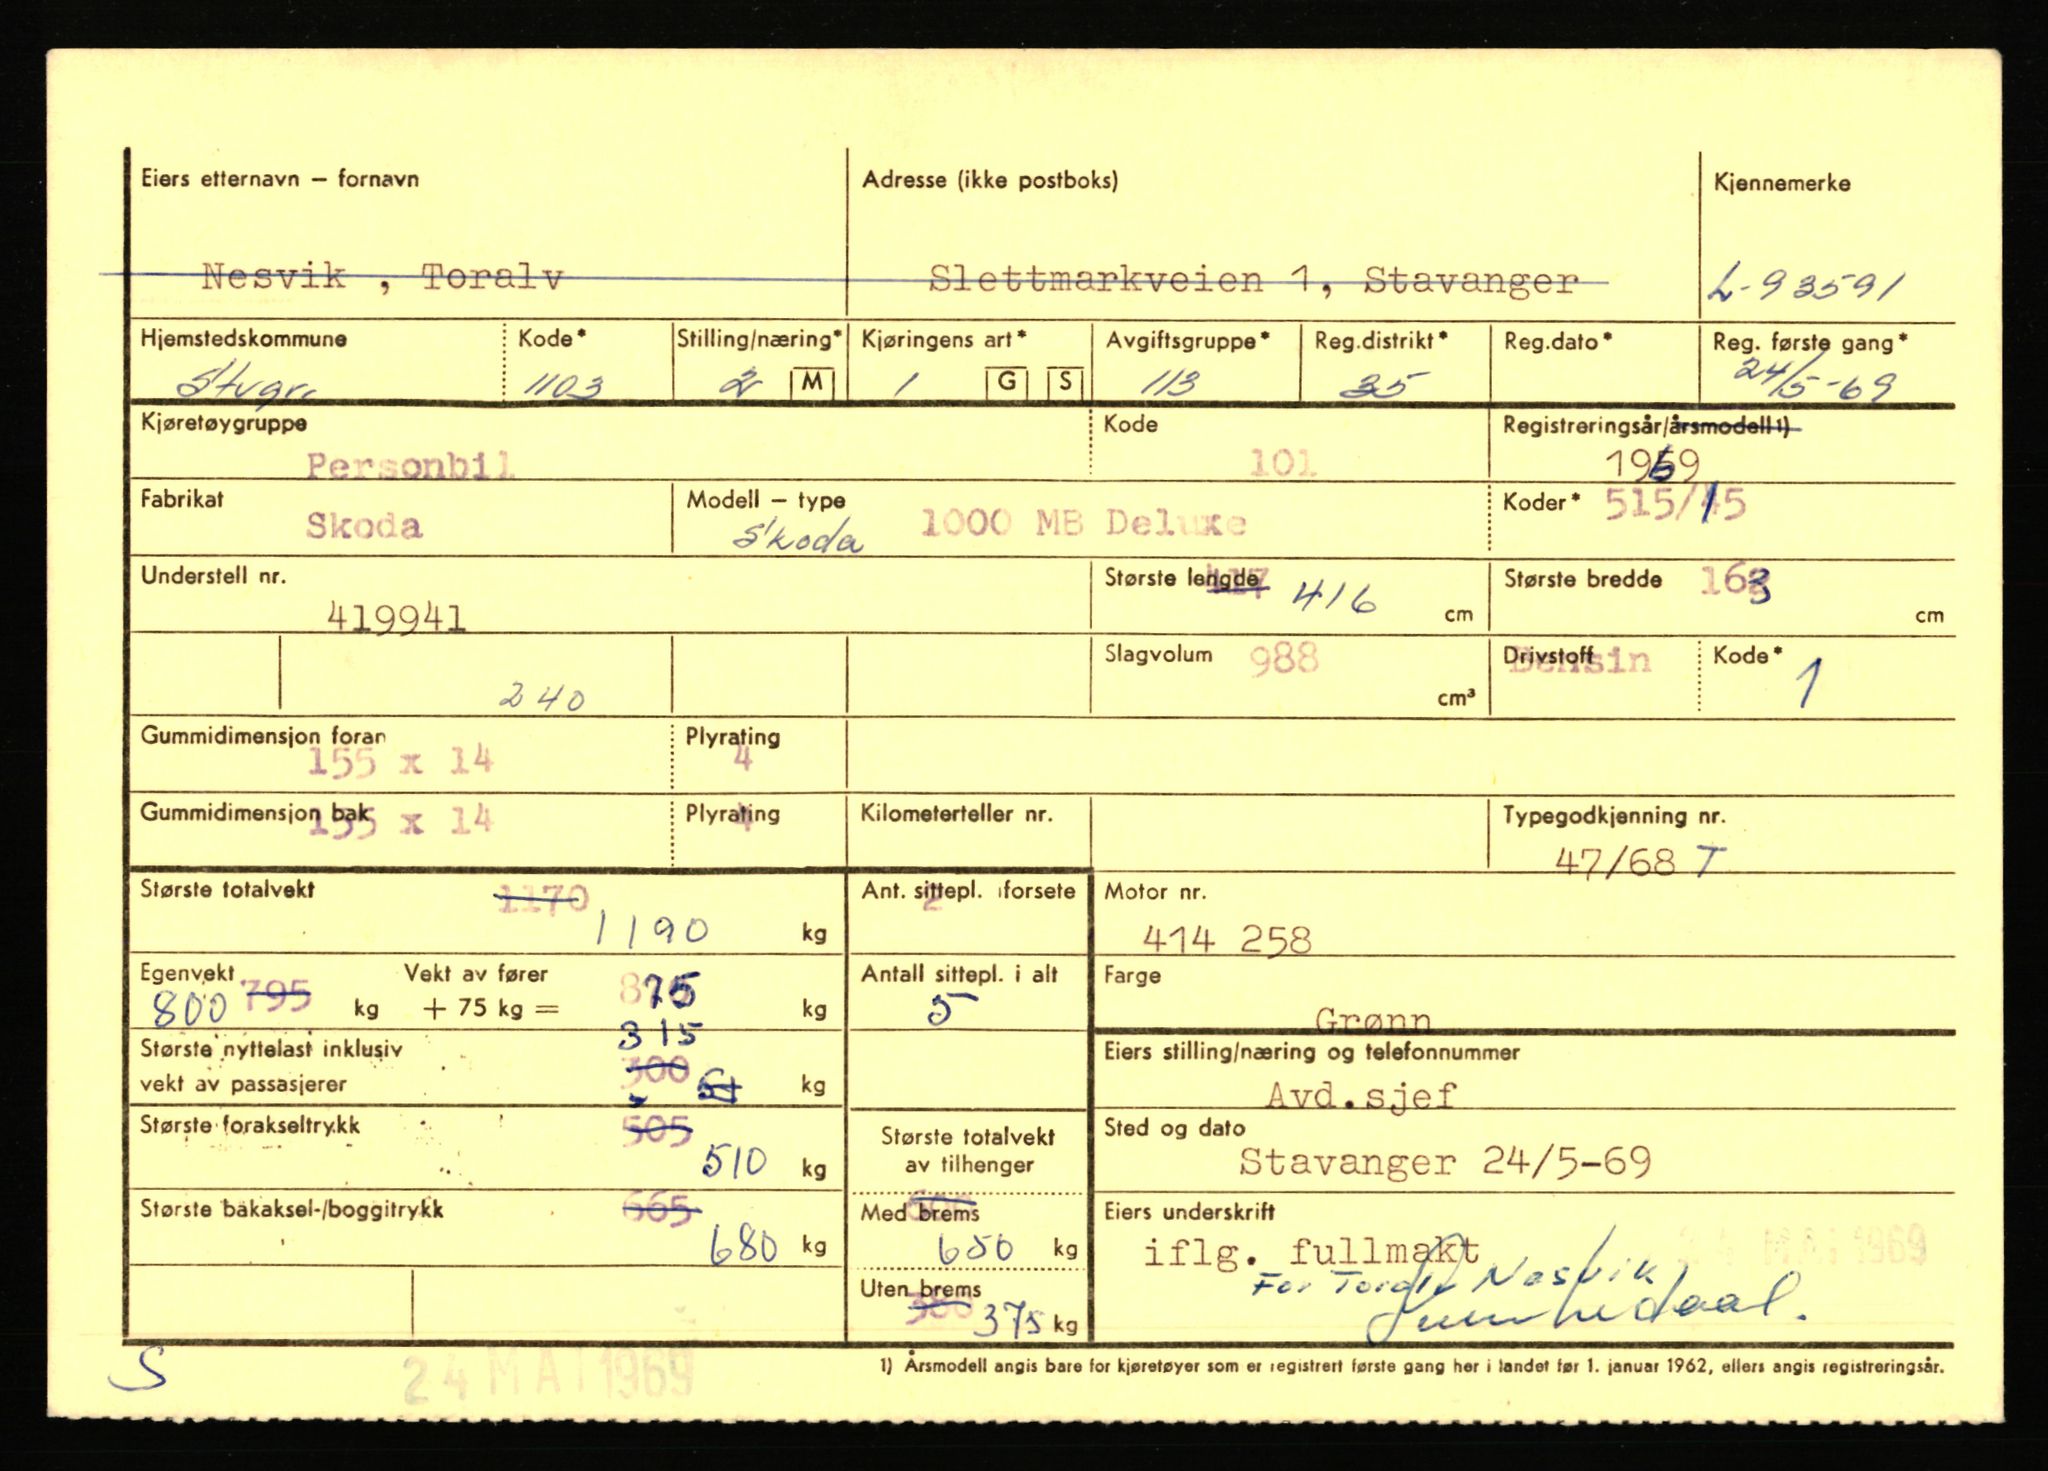 Eiers etternavn – fornavn Adresse (ikke postboks) Kjennemerke
Nesvik , Toralv Slettmarkveien 1, Stavanger L-93591
Hjemstedskommune Kode* Stilling/næring* Kjøringens art* Avgiftsgruppe* Reg.distrikt* Reg.dato* Reg. første gang*
Stvgr. 1103 2 M 1 G S 113 35 24/5-69
Kjøretøygruppe Kode Registreringsår/årsmodell 1)
Personbil 101 1969
Fabrikat Modell – type Koder* 515/15
Skoda Skoda 1000 MB Deluxe
Understell nr. Største lengde 417 416 cm Største bredde 163 cm
419941
Slagvolum 988 cm³ Drivstoff Bensin Kode* 1
240
Gummidimensjon foran Plyrating
155 x 14 4
Gummidimensjon bak Plyrating Kilometerteller nr. Typegodkjenning nr.
155 x 14 4 47/68 T
Største totalvekt 1170 Ant. sittepl. i forsete 2 Motor nr.
1190 kg 414 258
Egenvekt Vekt av fører Antall sittepl. i alt Farge
800 795 kg + 75 kg = 875 kg 5 Grønn
315
Største nyttelast inklusiv 300 Eiers stilling/næring og telefonnummer
vekt av passasjerer kg Avd.sjef
Største forakseltrykk 505 Største totalvekt Sted og dato
510 kg av tilhenger Stavanger 24/5-69
Største bakaksel-/boggitrykk 665 Med brems Eiers underskrift
680 kg 650 kg iflg. fullmakt 24 MAI 1969
For Toralv Nesvik
Uten brems 380
375 kg
S 24 MAI 1969 1) Årsmodell angis bare for kjøretøyer som er registrert første gang her i landet før 1. januar 1962, ellers angis registreringsår.